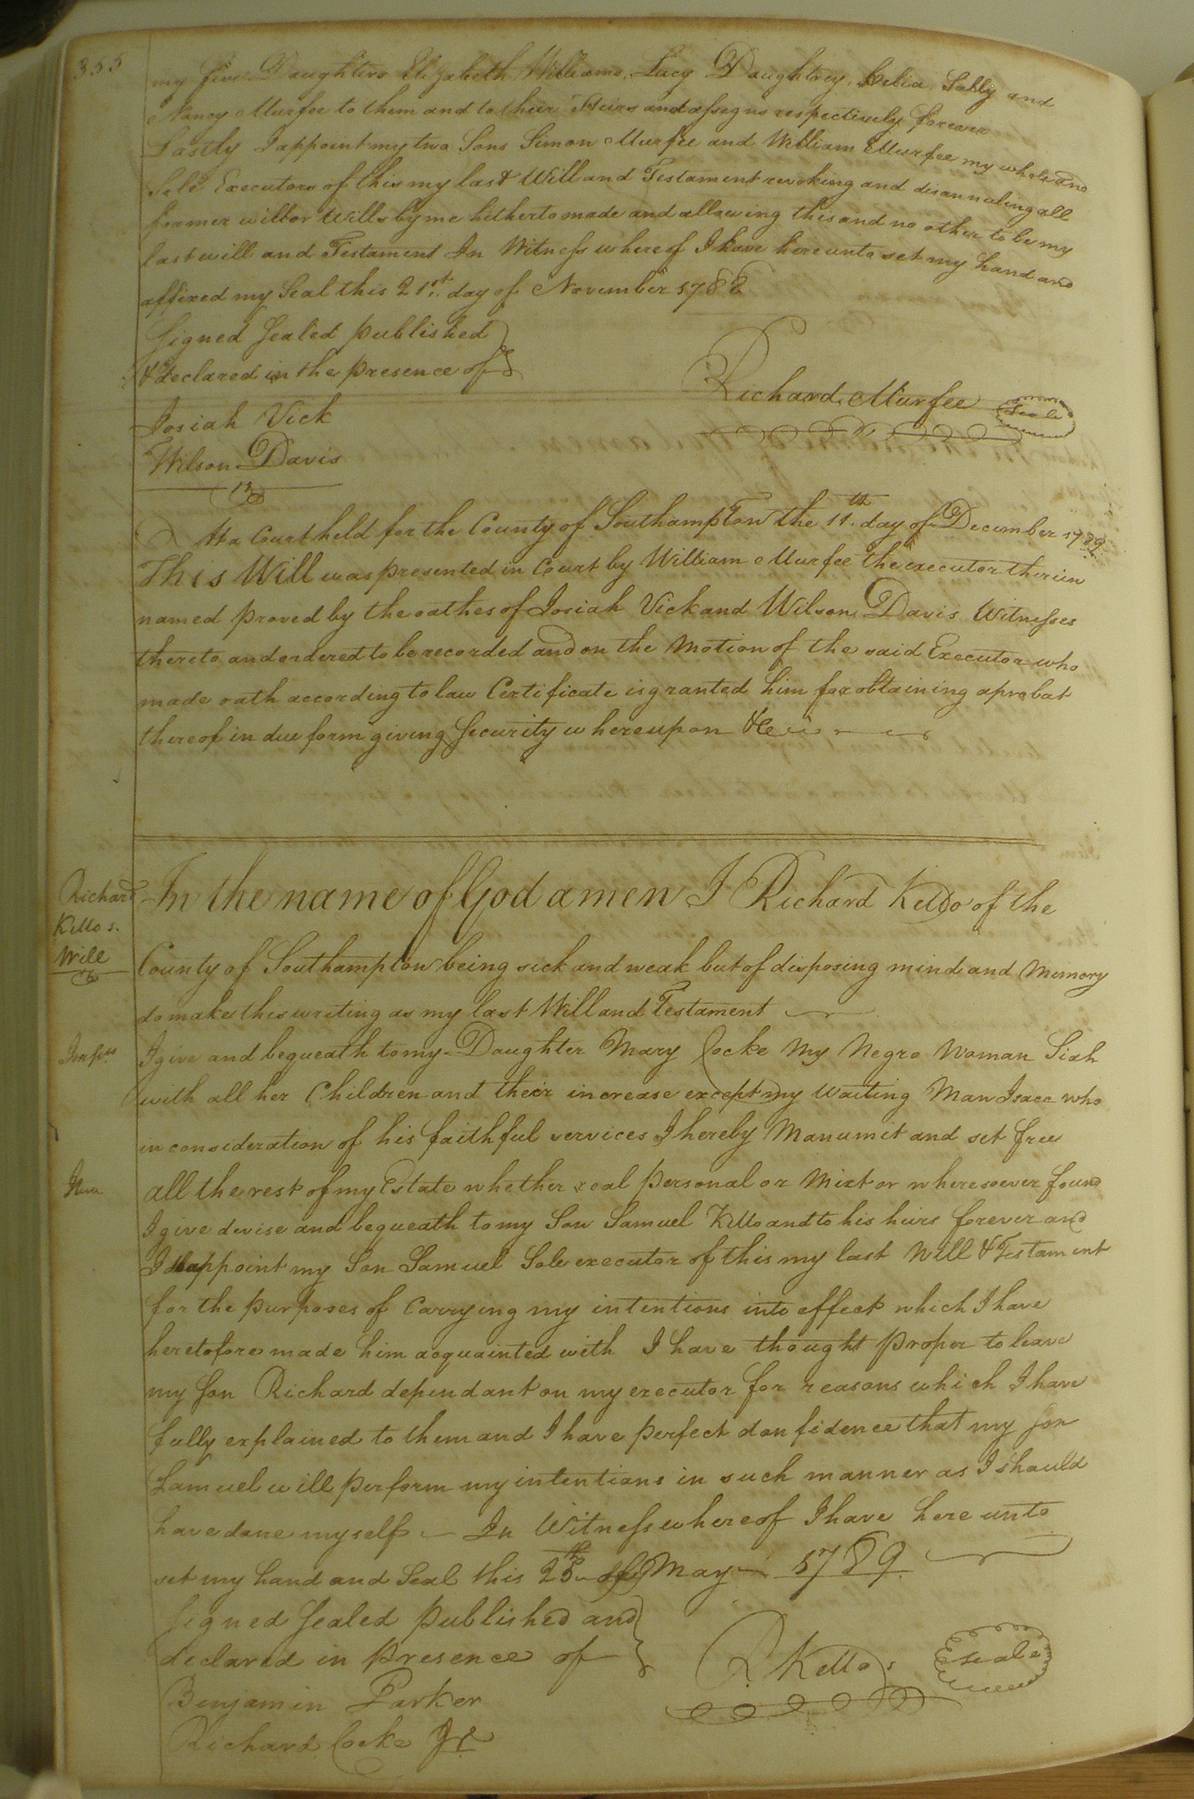 355
my five Daughters Elizabeth Williams, Lucy Daughtrey, Celia, Sally and
Nancy Murfee to them and to their Heirs and assegns respectively forever
Lastly I appoint my two Sons Simon Murfee and William Murfee my whole and
Sole Executors of this my last Will and Testament revoking and disannuling all
former will or Wills by me hitherto made and allowing this and no other to be my
last will and Testament In Witness whereof I have hereunto set my hand and
affixed my Seal this 21st. day of November 1788
Signed Sealed published
& declared in the presence of
Richard Murfee Seale
Josiah Vick
Wilson Davis
At a Court held for the County of Southampton the 11th. day of December 1789
This Will was presented in Court by William Murfee the executor therein
named proved by the oathes of Josiah Vick and Wilson Davis Witnesses
thereto and ordered to be recorded and on the Motion of the said Executor who
made oath according to law Certificate is granted him for obtaining a probat
thereof in due form giving Security whereupon &c
Richard
Kello s.
Will
In the name of God amen I Richard Kello of the
County of Southampton being sick and weak but of disposing mind and Memory
do make this writing as my last Will and Testament
I give and bequeath to my Daughter Mary Cocke My Negro Woman Siah
with all her Children and their increase except my Waiting Man Isaac who
in consideration of his faithful services I hereby Manumit and set free
Item
all the rest of my Estate whether real personal or Mixt or wheresoever found
I give devise and bequeath to my Son Samuel Kello and to his heirs forever and
I appoint my Son Samuel Sole executor of this my last Will & Testament
for the purposes of Carrying my intentions into effect which I have
heretofore made him acquainted with I have thought proper to leave
my Son Richard dependant on my executor for reasons which I have
fully explained to them and I have perfect donfidence that my Son
Samuel will perform my intentions in such manner as I should
have done myself In Witness whereof I have here unto
set my hand and Seal this 25th of May 1789
Signed Sealed published and
declared in presence of
R. Kello Seale
Benjamin Parker
Richard Cocke Jr